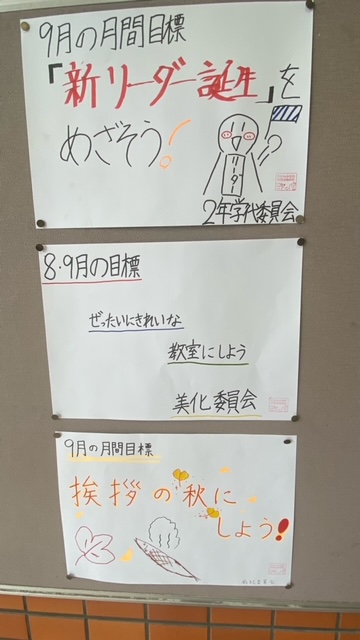 9月の月間目標
「新リーダー誕生」を
めざそう!
リーダー
2年学代委員会
8·9月の目標
ぜったいにきれいな
教室にしよう
美化委員会
9月の月間目標
挨拶の秋に
しよう!